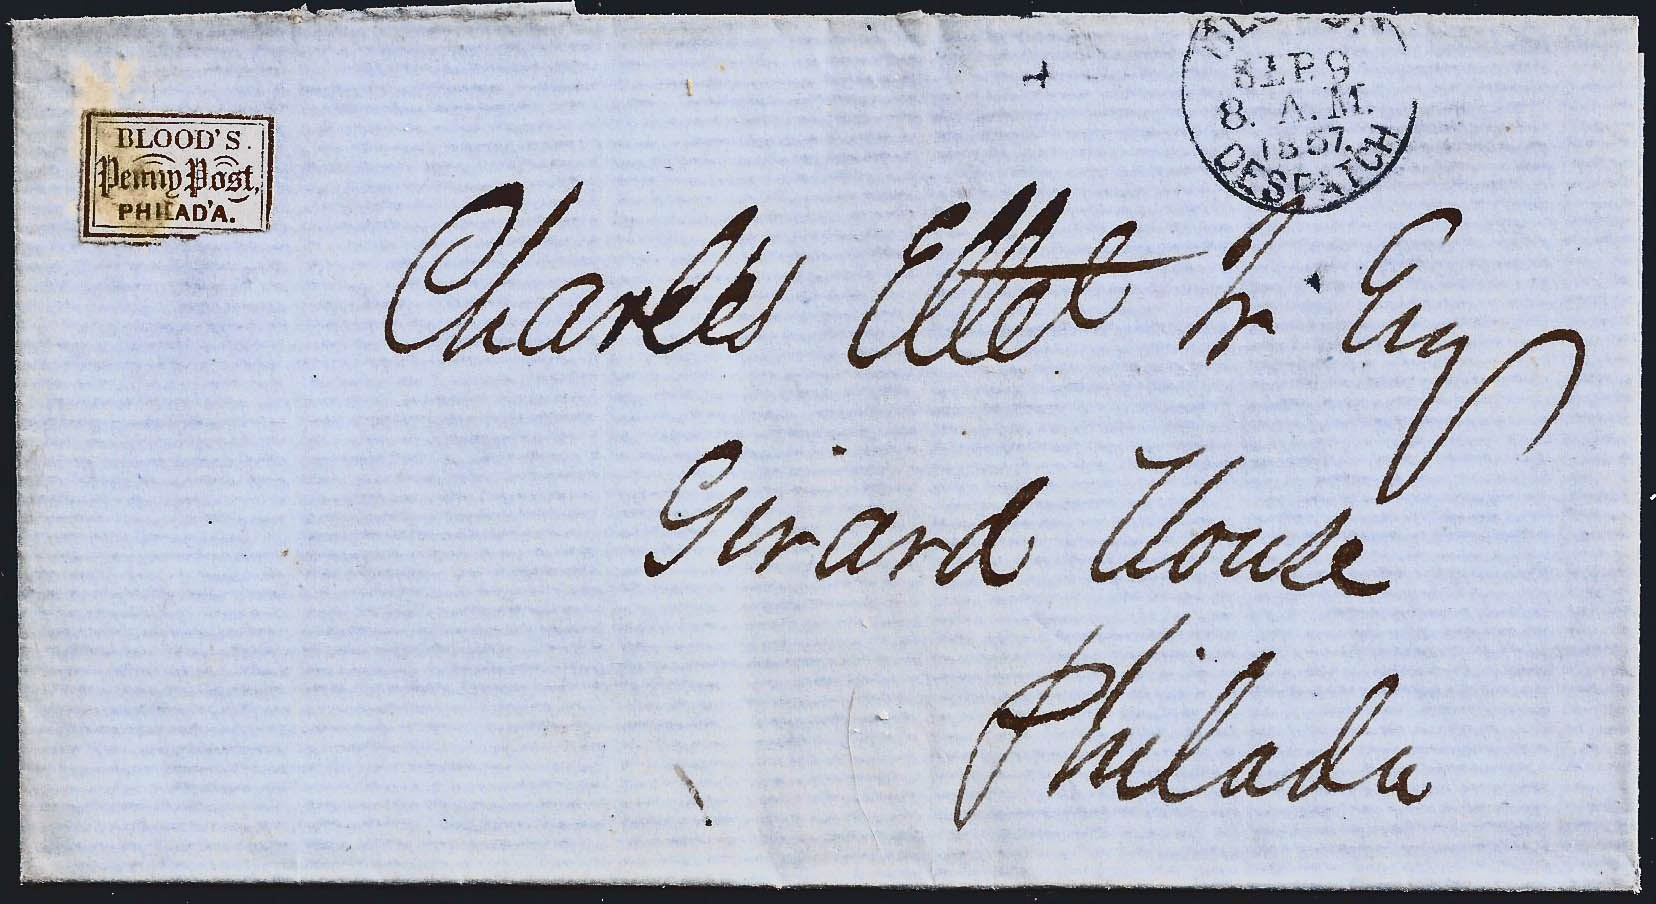 BLOOD'S.
Penny Post,
PHILAD'A.
SEP 9
8. A.M.
1857.
DESPATCH
Charles Ellet Jr Esq
Girard House
Philada